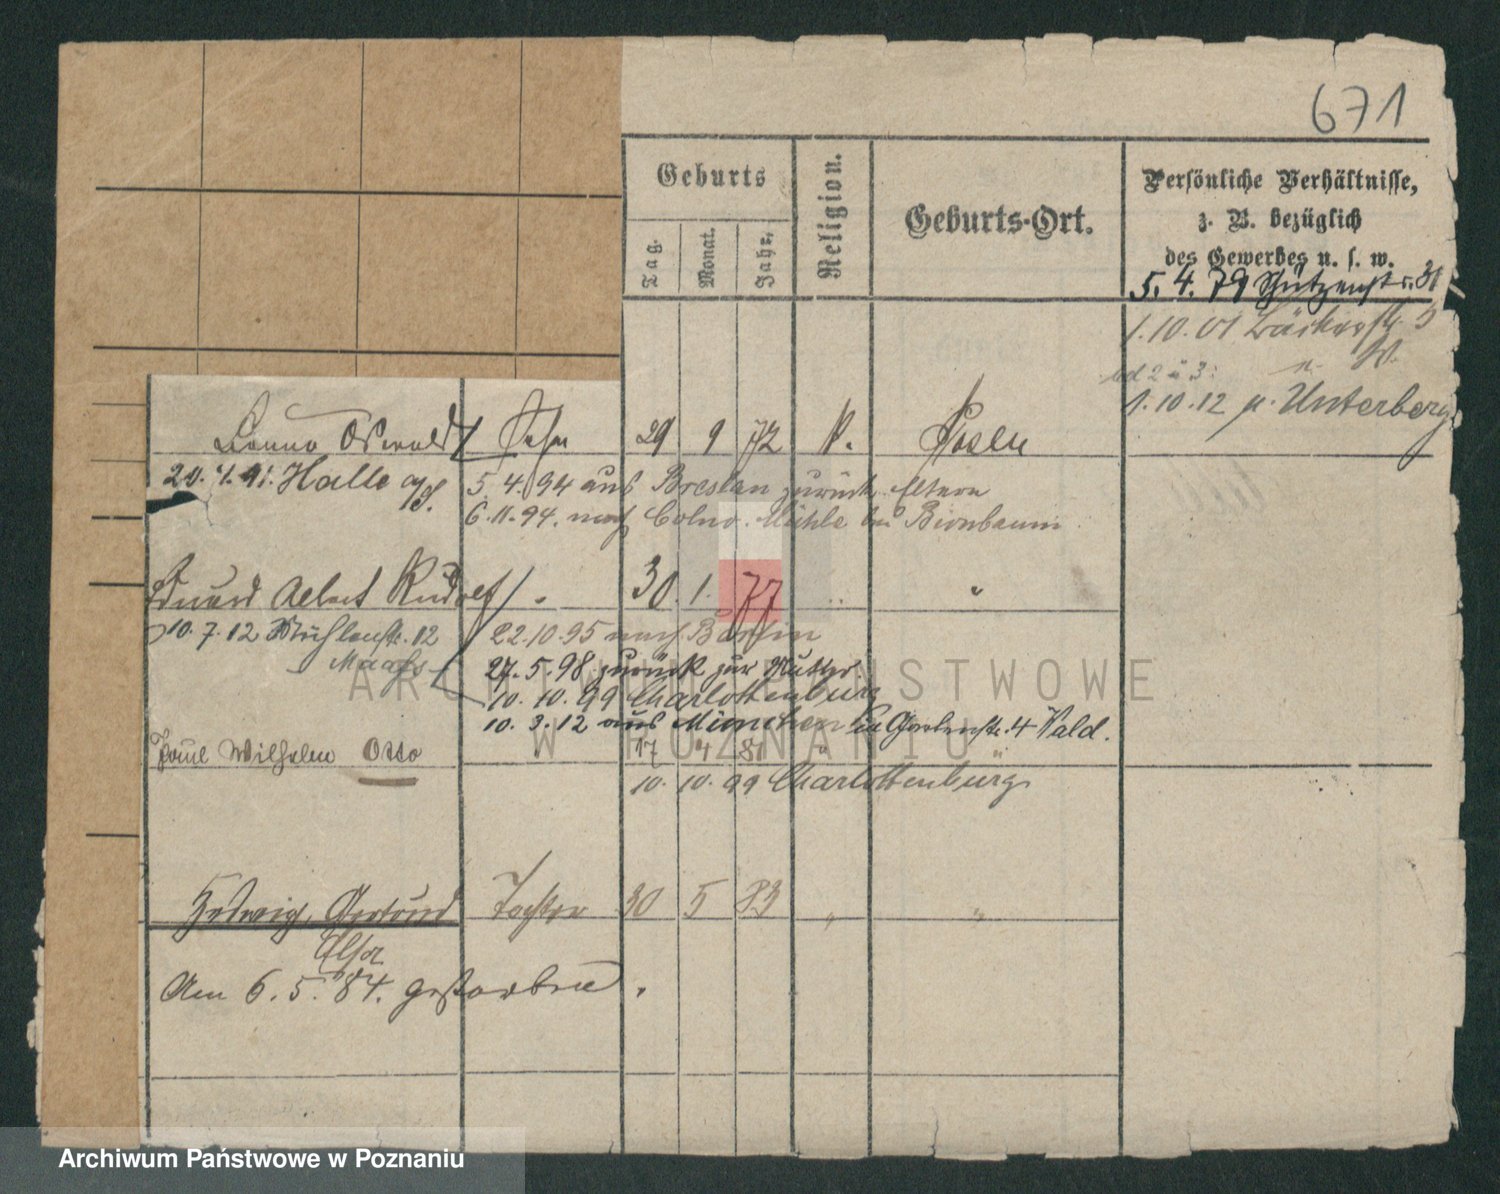 671
Geburts
Tag.
Monat.
Jahr.
Religion.
Geburts-Ort.
Persönliche Verhältnisse,
z. B. bezüglich
des Gewerbes u. s. w.
5. 4. 79 Schützenstr. 31
1.10.01 Bäckerstr. 5
1.10.12 Unterberg
Benno Oswald Sohn 29 9 72 k. Posen
20.4.91. Halle a/S. 5.4.94 aus Breslau zurück Eltern
6.11.94. nach Mühle bei Birnbaum
Eduard Albert Rudolf " 30. 1. 77 " "
10.7.12 Mühlenstr. 12 22.10.95 nach Berlin
27.5.98 zurück zur Mutter
10.10.99 Charlottenburg
10.3.12 aus München
Paul Wilhelm Otto " 17 4 81 " "
10. 10. 99 Charlottenburg
Hedwig, Gertrud Tochter 30 5 83 " "
Elsa
Am 6.5.84. gestorben.
ARCHIWUM PAŃSTWOWE
W POZNANIU
Archiwum Państwowe w Poznaniu